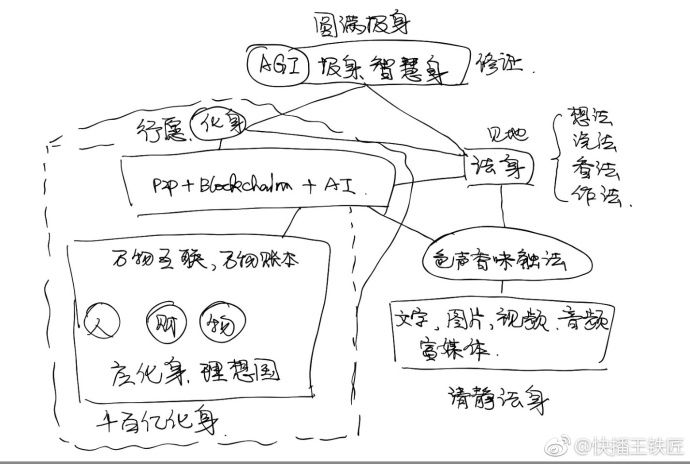 圆满报身
AGI 报身、智慧身 修证.
行愿、化身
见地
法身
想法
说法
看法
作法.
P2P + Blockchain + AI.
万物互联、万物账本
人 财 物
应化身、理想国
千百亿化身
色声香味触法
文字、图片、视频、音频
富媒体.
清静法身
@快播王铁匠